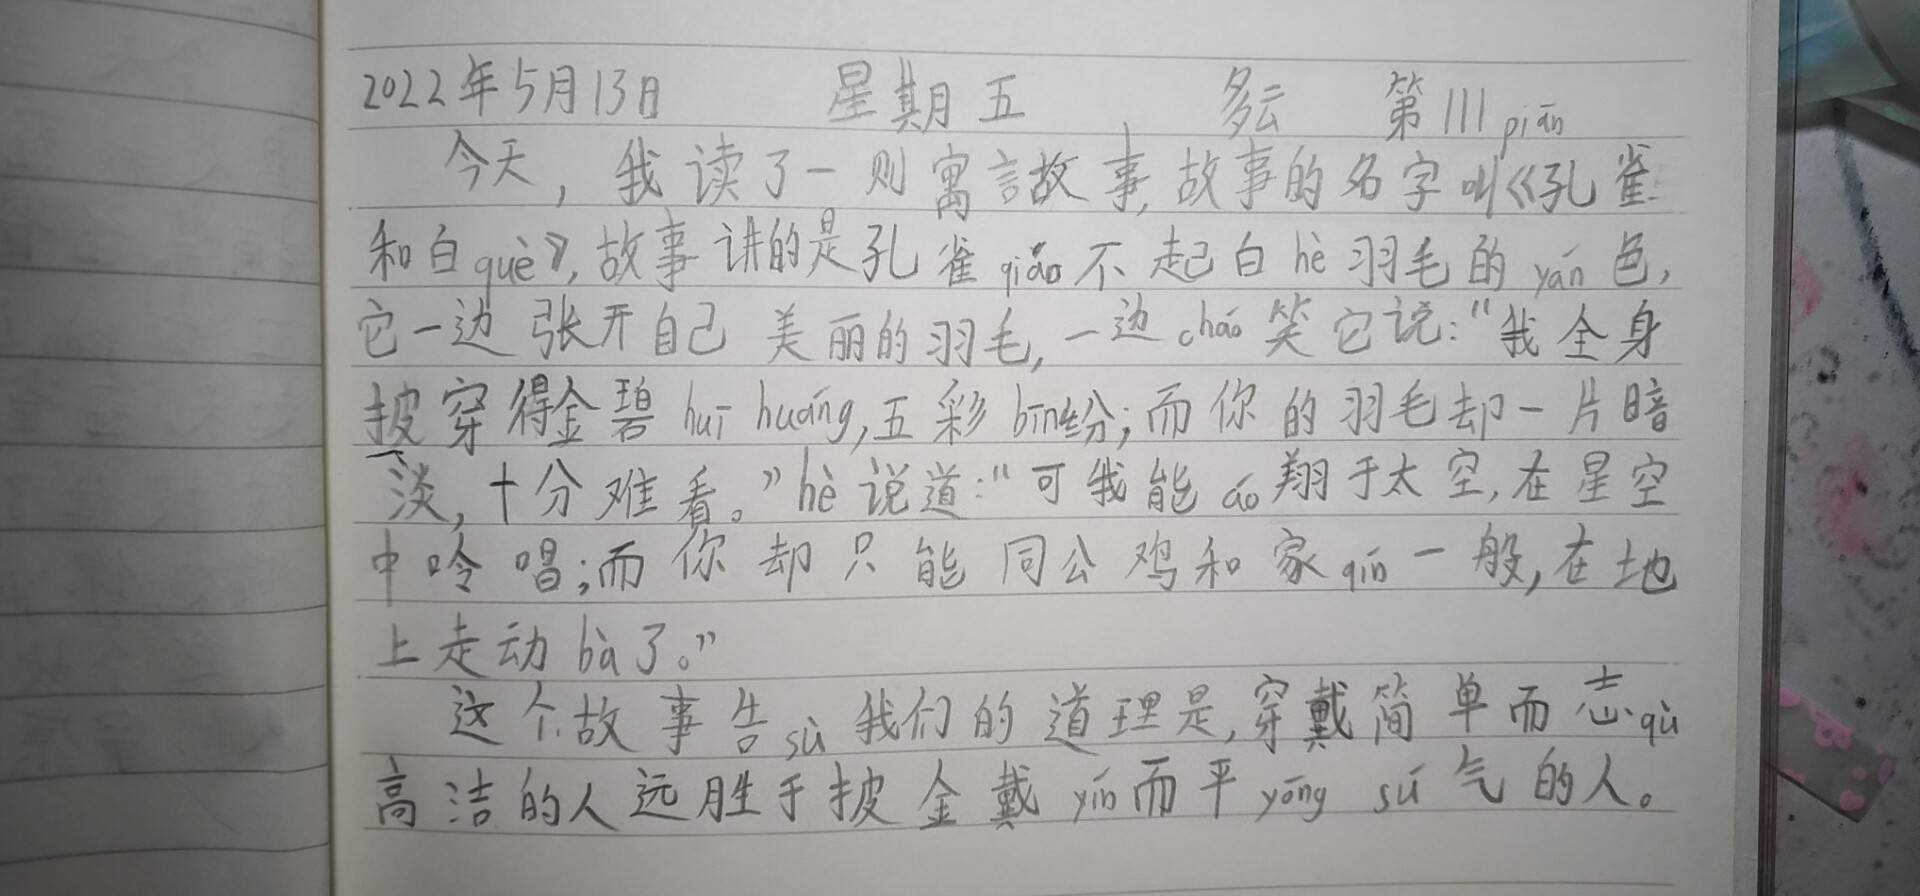 2022年5月13日 星期五 多云 第111piān
今天，我读了一则寓言故事，故事的名字叫《孔雀
和白què》，故事讲的是孔雀qiáo不起白hè羽毛的yán色，
它一边张开自己美丽的羽毛，一边cháo笑它说：“我全身
披穿得金碧huī huáng，五彩bīn纷；而你的羽毛却一片暗
淡，十分难看。”hè说道：“可我能áo翔于太空，在星空
中吟唱；而你却只能同公鸡和家qín一般，在地
上走动bà了。”
这个故事告sù我们的道理是，穿戴简单而志qù
高洁的人远胜于披金戴yín而平yōng sú气的人。